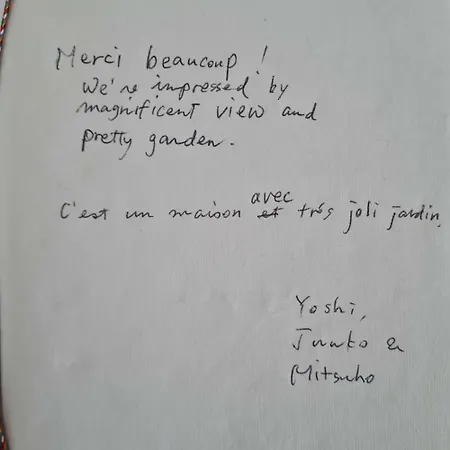 Merci beaucoup !
We're impressed by
magnificent view and
pretty garden.
C'est un maison avec trés joli jardin.
Yoshi,
Junko &
Mitsuho